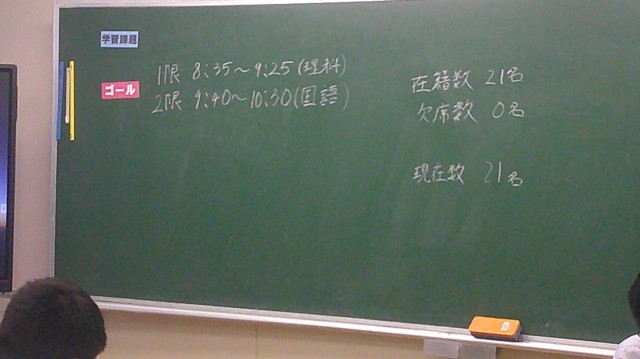 学習課題
ゴール
1限 8:35～9:25(理科)
2限 9:40～10:30(国語)
在籍数 21名
欠席数 0名
現在数 21名